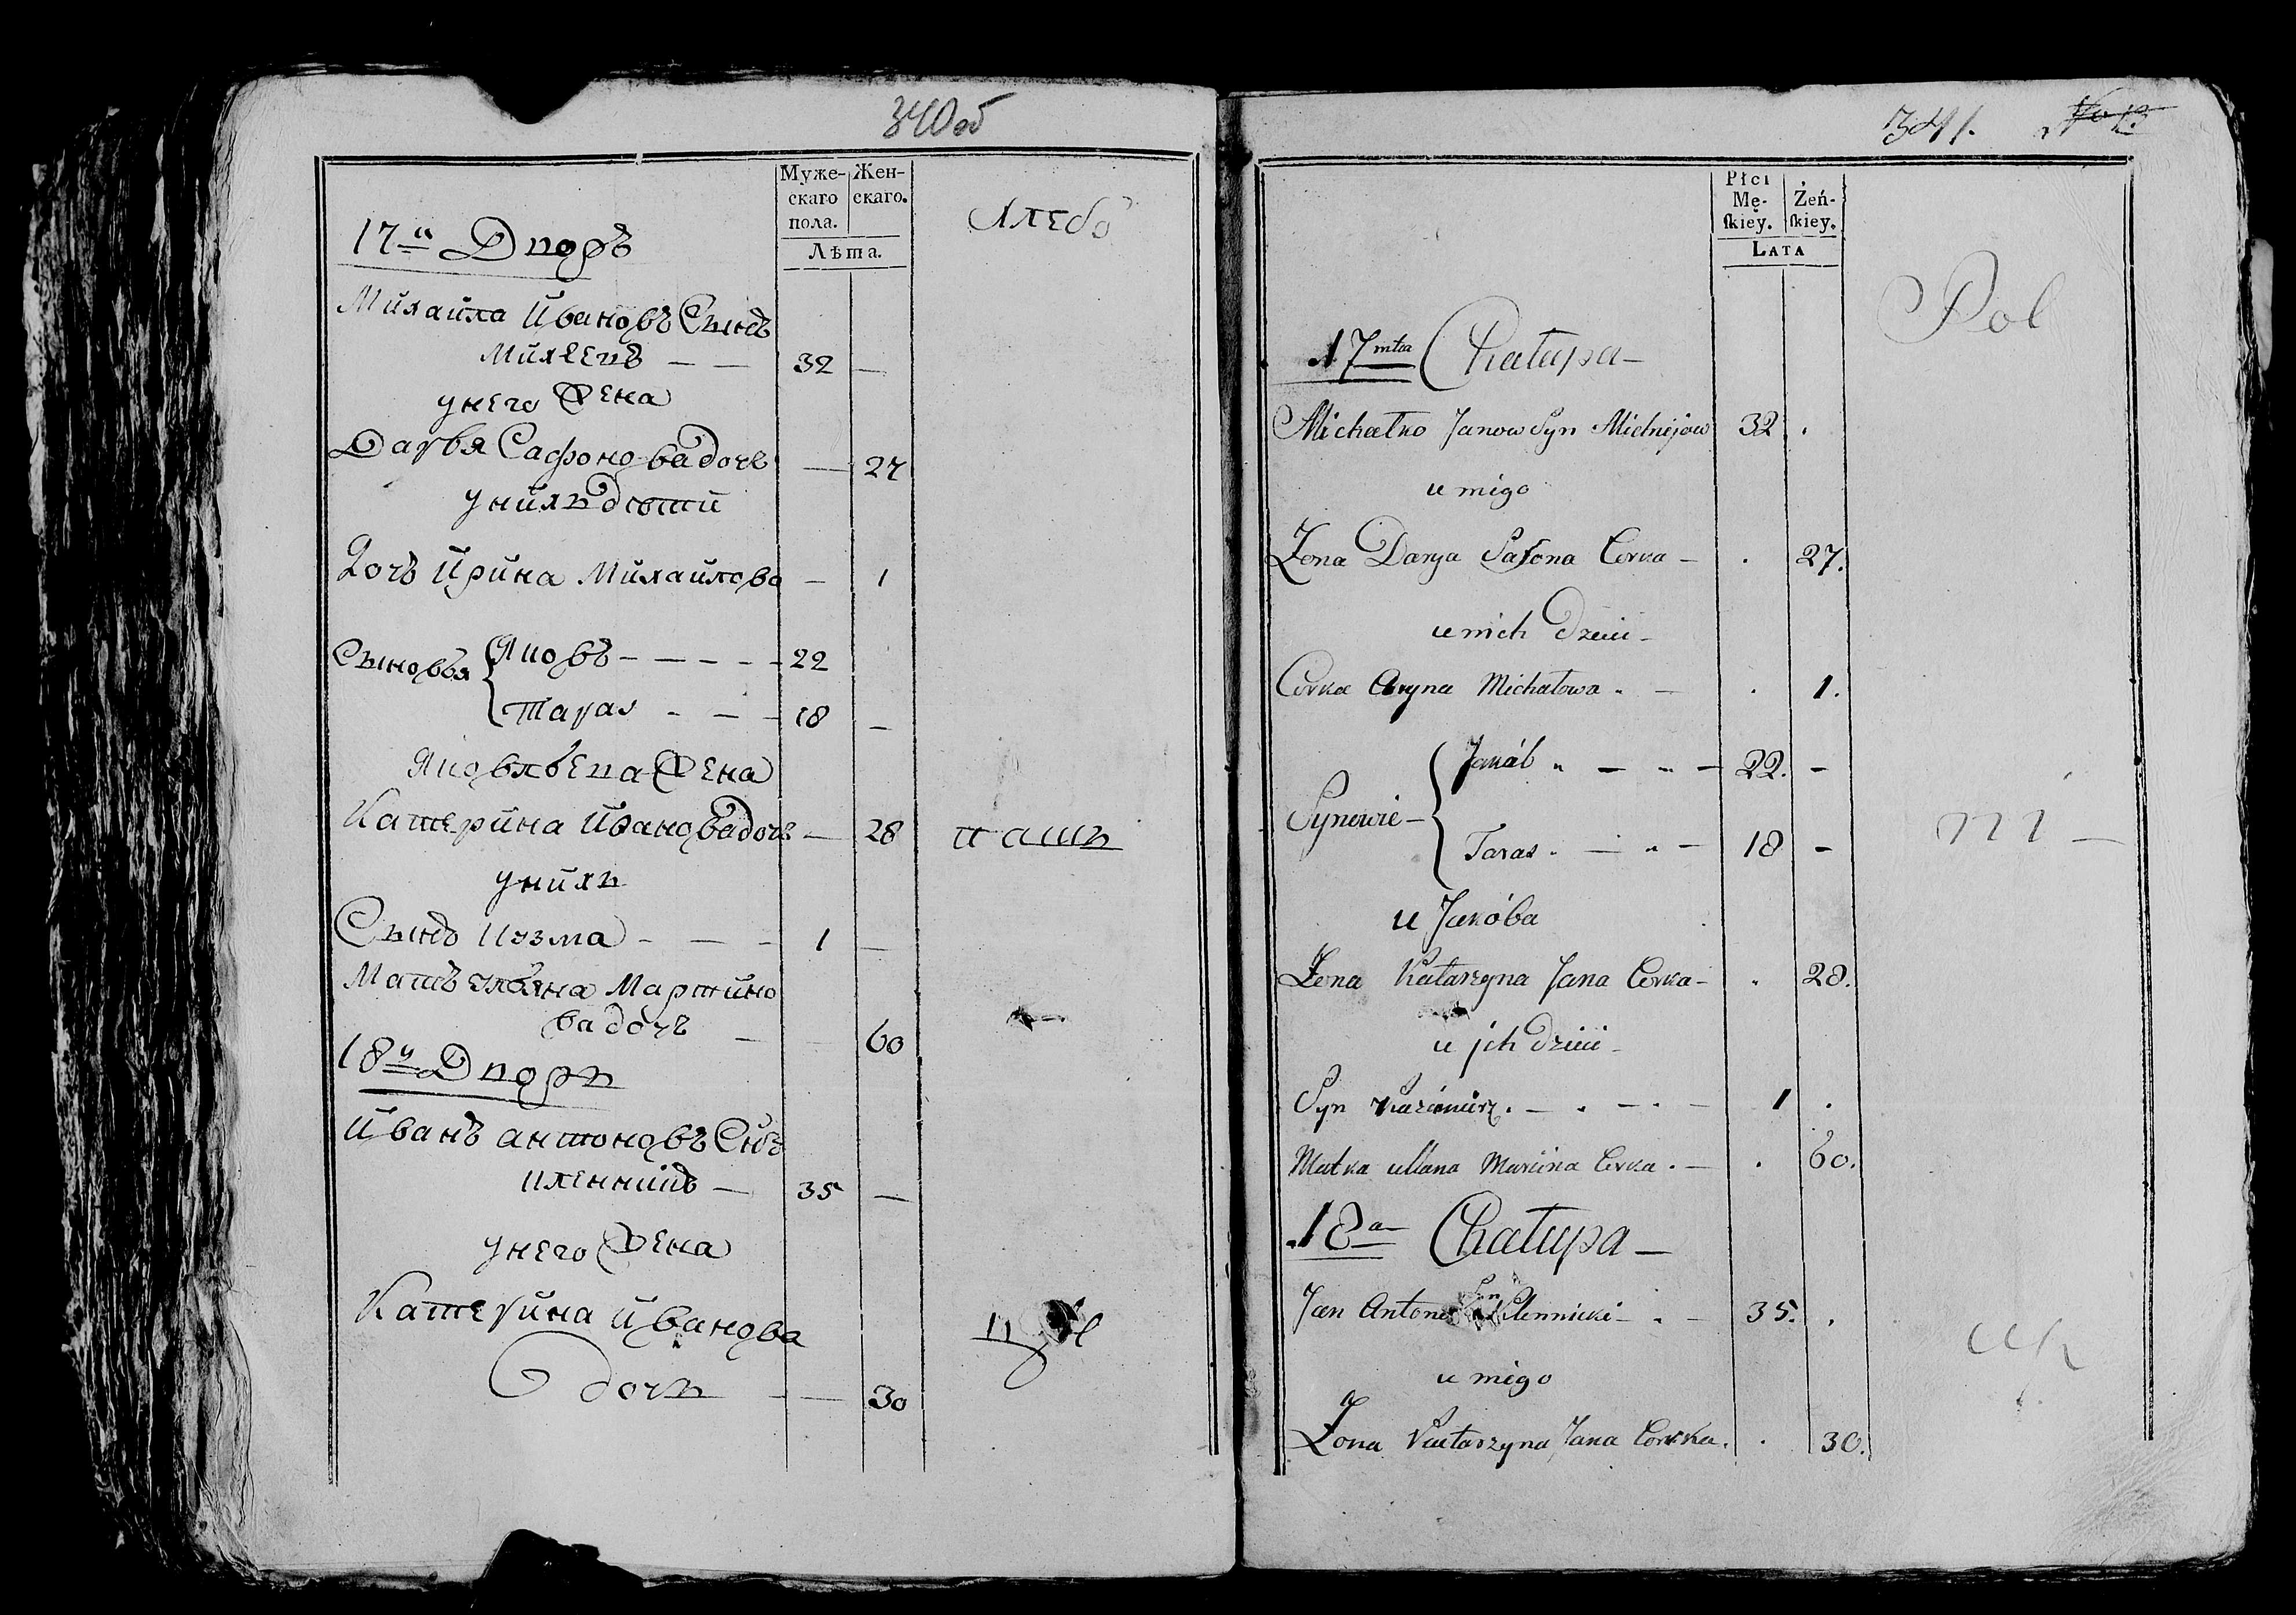 340об
Муже-
скаго
пола.
Жен-
скаго.
Лѣта.
17й Дворъ
Хлебо
Михайла Ивановъ Сынъ
Михеевъ — — 32 —
у него Жена
Дарья Сафонова дочь — 27
у нихъ дѣти
Дочь Ирина Михайлова — 1
Сыновья
Яковъ - - - - - 22
Тарас - - - 18 —
Яковлева Жена
Катерина Иванова дочь — 28
паш
у нихъ
Сынъ Кузма - — - 1 —
Мать Ульяна Мартино
ва дочь — 60
18й Дворъ
Иванъ Антоновъ Снъ
— 35 —
у него Жена
Катерина Иванова
дочь — — 30
341.
No
Płci
Mę-
ſkiey.
Żeń-
ſkiey.
LATA
Pol
17mta Chałupa —
Michałko Janow Syn Michiejow 32 .
u niego
Żona Darya Safona Corka — . 27.
u nich Dzieci —
Corka Aryna Michałowa . — . 1.
Synowie —
Jakób „ — „ — 22. —
Taras . — „ — 18 —
u Jakóba
Żona Katarzyna Jana Corka — . 28.
u jch Dzieci —
Syn Kazimierz . — . — . — 1 .
Matka Ullana Marcina Corka . — . 60.
18a Chałupa —
Jan Antona Syn Klennicki — . — 35. .
u niego
Żona Katarzyna Jana Corka . . 30.